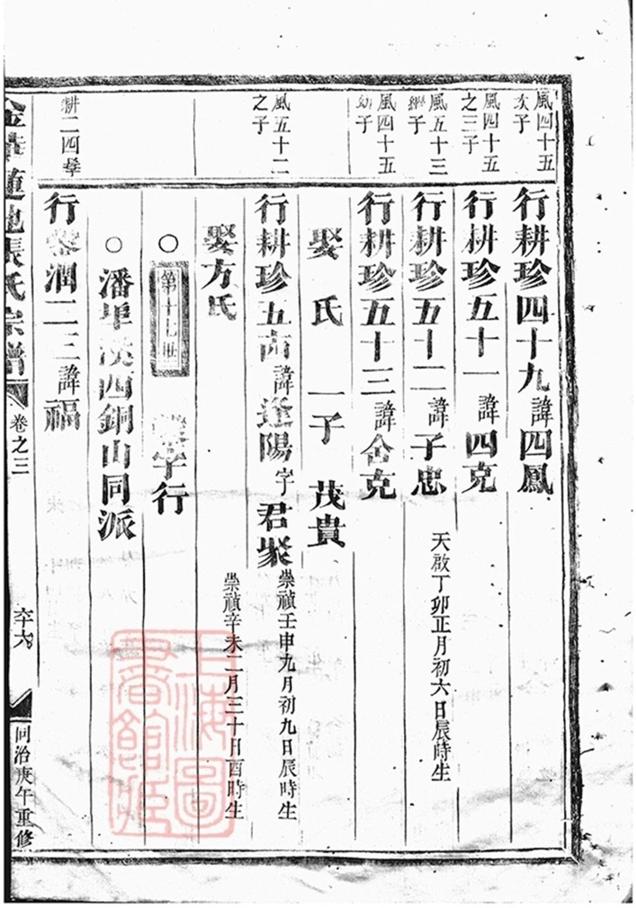 風四十五
次子
行耕珍四十九諱四鳳
風四十五
之三子
行耕珍五十一諱四克
風五十三
繼子
行耕珍五十二諱子忠
天啟丁卯正月初六日辰時生
風四十五
幼子
行耕珍五十三諱舍克
娶 氏 一子 茂貴
風五十二
之子
行耕珍五 諱逢陽字君聚
崇禎壬申九月初九日辰時生
娶方氏
崇禎辛未二月三十日酉時生
○ 第十七世 字行
○ 潘 溪西銅山同派
耕二四
行 潤二三諱福
金華蓮池張氏宗譜
卷之三
同治庚午重修
上海圖書館